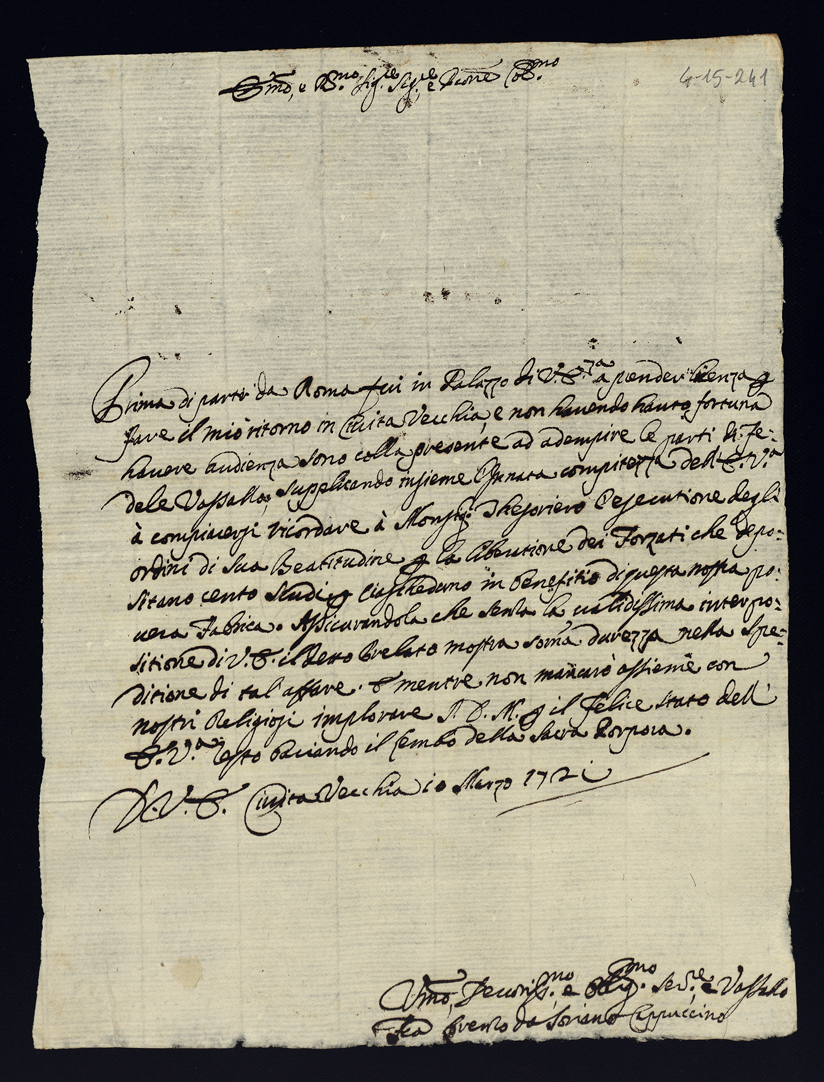 4-15-241
Em̄o, e R.mo Sig.re Sig.re, e Pr̄one Col.mo
Prima di partir da Roma fui in Palazzo di V.E.za a prender licenza p
fare il mio ritorno in Civita Vecchia, e non havendo hauto fortuna
havere audienza sono colla presente ad adempire le parti di fe-
dele Vassallo, supplicando insieme l'innata compitezza dell'E.V.a
à compiacersi ricordare à Monsig.r Thesoriero l'esecutione degli
ordini di Sua Beatitudine p la liberatione dei Forzati che depo-
sitano cento scudi p ciascheduno in benefitio di questa nostra po-
vera Fabrica. Assicurandola che senza la validissima interpo-
sitione di V.E. il detto Prelato mostra som̄a durezza nella spe-
ditione di tal affare. E mentre non mancarò assieme con
nostri Religiosi implorare S.D.M. p il felice stato dell'
E.V.a resto baciando il lembo della Sacra Porpora.
D.V.E. Civita Vecchia 10 Marzo 1721
Um̄o, Devotiss.mo e Oblig.mo Ser.re e Vassallo
Fra da Soriano Cappuccino